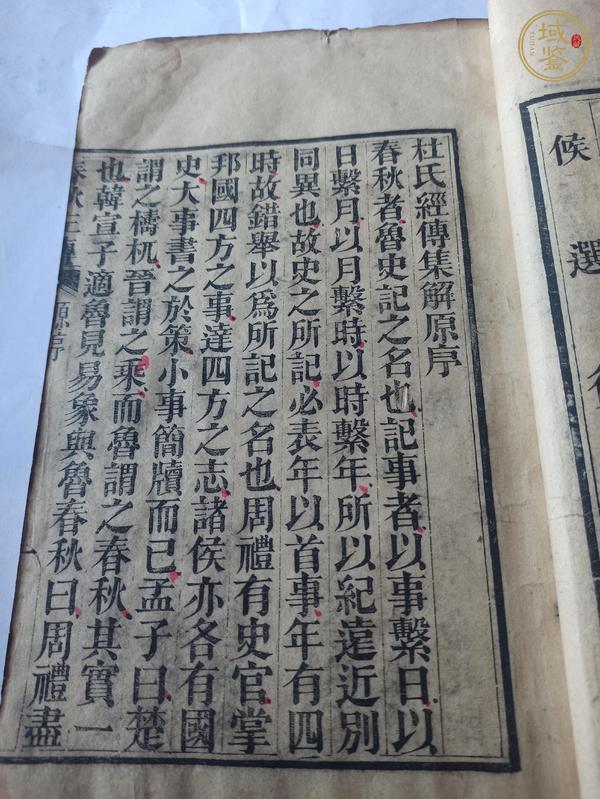 杜氏經傳集解原序
春秋者魯史記之名也記事者以事繫日以
日繫月以月繫時以時繫年所以紀遠近別
同異也故史之所記必表年以首事年有四
時故錯舉以爲所記之名也周禮有史官掌
邦國四方之事達四方之志諸侯亦各有國
史大事書之於策小事簡牘而已孟子曰楚
謂之檮杌晉謂之乘而魯謂之春秋其實一
也韓宣子適魯見易象與魯春秋曰周禮盡
春秋三傳 原序
候
選
域鑒
YUJIAN